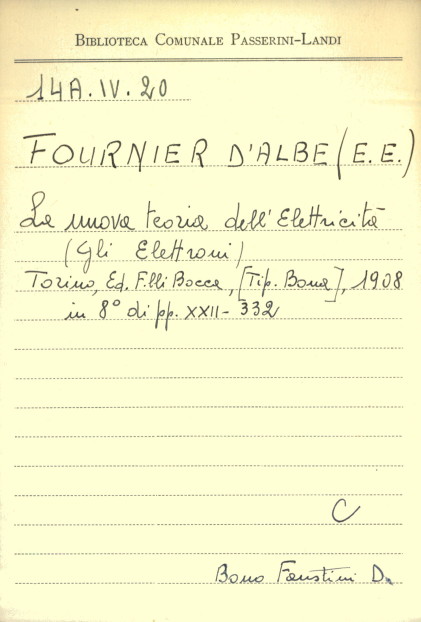 BIBLIOTECA COMUNALE PASSERINI-LANDI
14A.IV.20
FOURNIER D'ALBE (E.E.)
La nuova teoria dell'Elettricità
(Gli Elettroni)
Torino, Ed. F.lli Bocca, [Tip. Bona], 1908
in 8° di pp. XXII-332
C
Bono Faustini D.